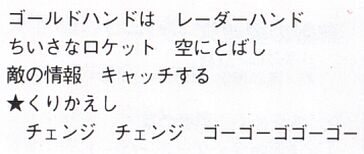 ゴールドハンドは　レーダーハンド
ちいさなロケット　空にとばし
敵の情報　キャッチする
★くりかえし
　チェンジ　チェンジ　ゴーゴーゴゴーゴー